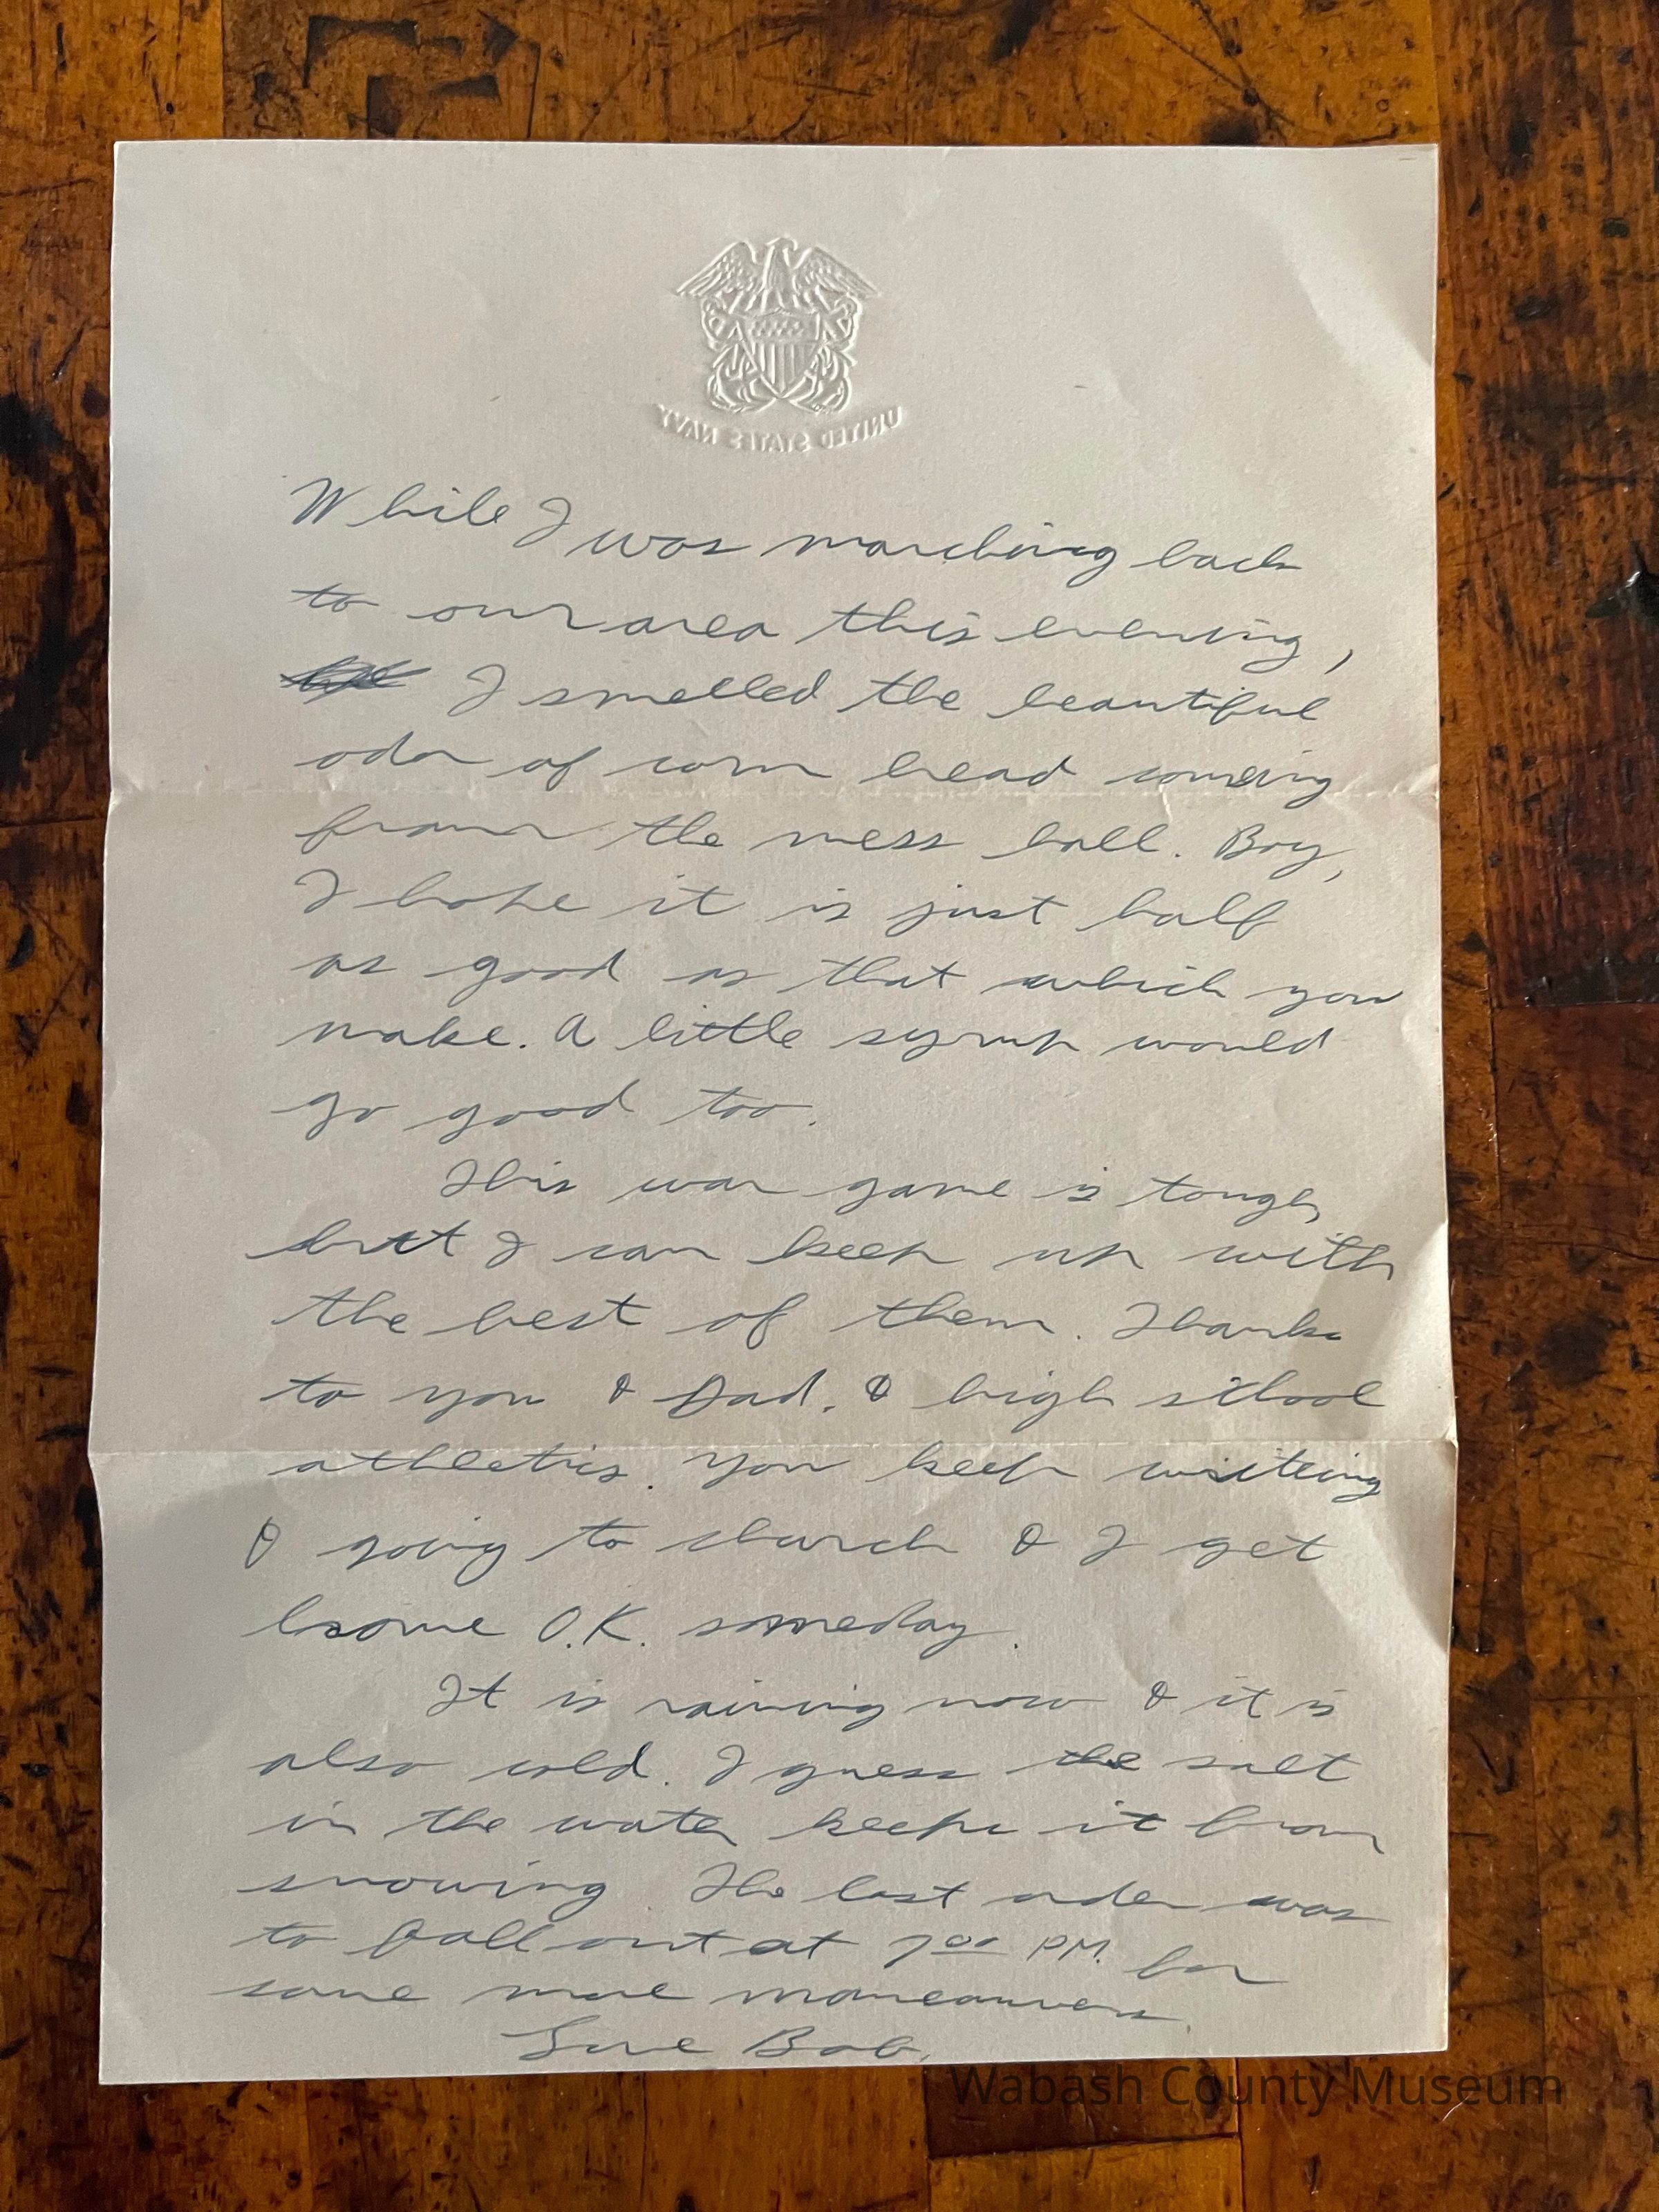 UNITED STATES NAVY
While I was marching back
to our area this evening,
I smelled the beautiful
odor of corn bread coming
from the mess hall. Boy,
I hope it is just half
as good as that which you
make. A little syrup would
go good too.
This war game is tough,
but I can keep up with
the best of them. Thanks
to you & Dad, & high school
athletics. You keep writing
& going to church & I get
home O.K. someday.
It is raining now & it is
also cold. I guess the salt
in the water keeps it from
snowing. The last order was
to fall out at 7⁰⁰ P.M. for
some more maneauvers.
Love Bob.
Wabash County Museum